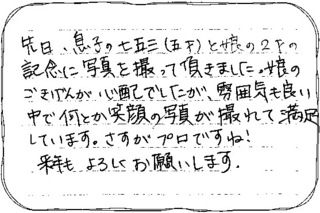 先日、息子の七五三(五才)と娘の2才の
記念に写真を撮って頂きました。娘の
ごきげんが心配でしたが、雰囲気も良い
中で何とか笑顔の写真が撮れて満足
しています。さすがプロですね!
来年もよろしくお願いします.